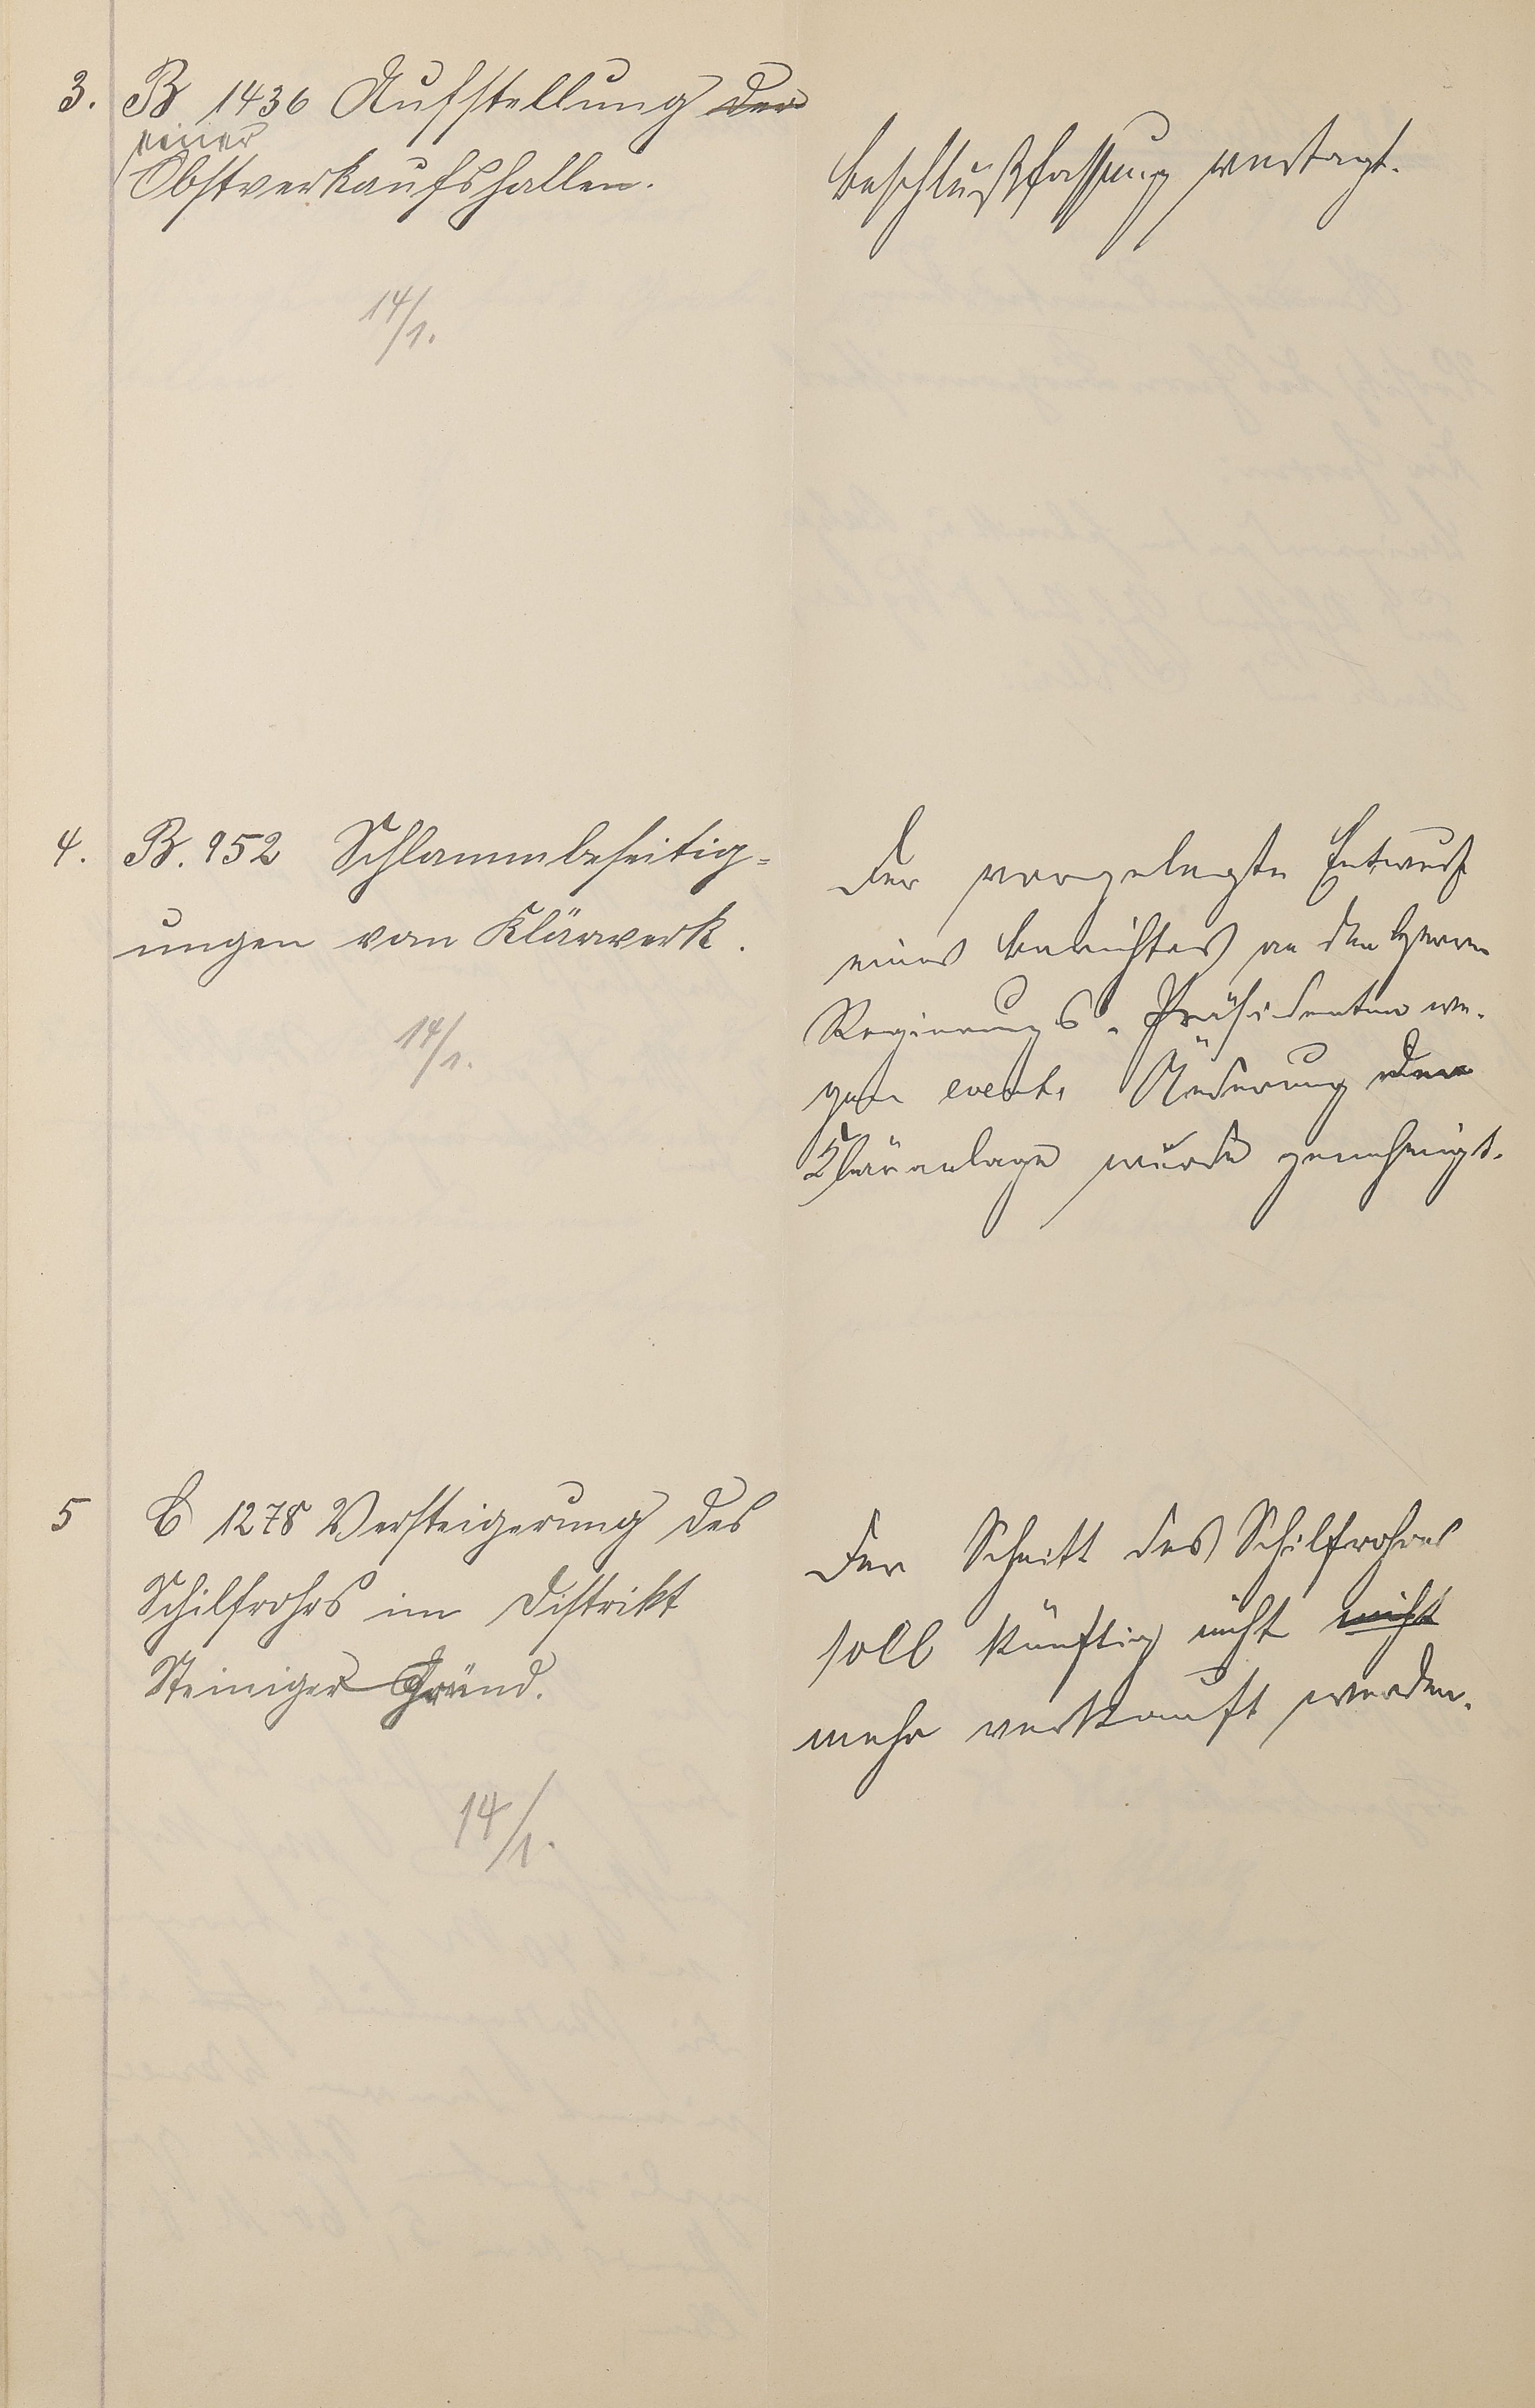 3. B 1436 Aufstellung der
einer
Obstverkaufshallen.
14/1.
Beschlußfassung vertagt.
4. B. 952 Schlammbeseitig=
ungen vom Klärwerk.
14/1.
Der vorgelegte Entwurf
eines Berichtes an den Herrn
Regierungs-Präsidenten we-
gen event. Änderung der
Kläranlage wurde genehmigt.
5 C 1278 Versteigerung des
Schilfrohrs im Distrikt
Steiniger Gründ.
14/1.
Der Schnitt des Schilfrohres
soll künftig nicht nicht
mehr verkauft werden.